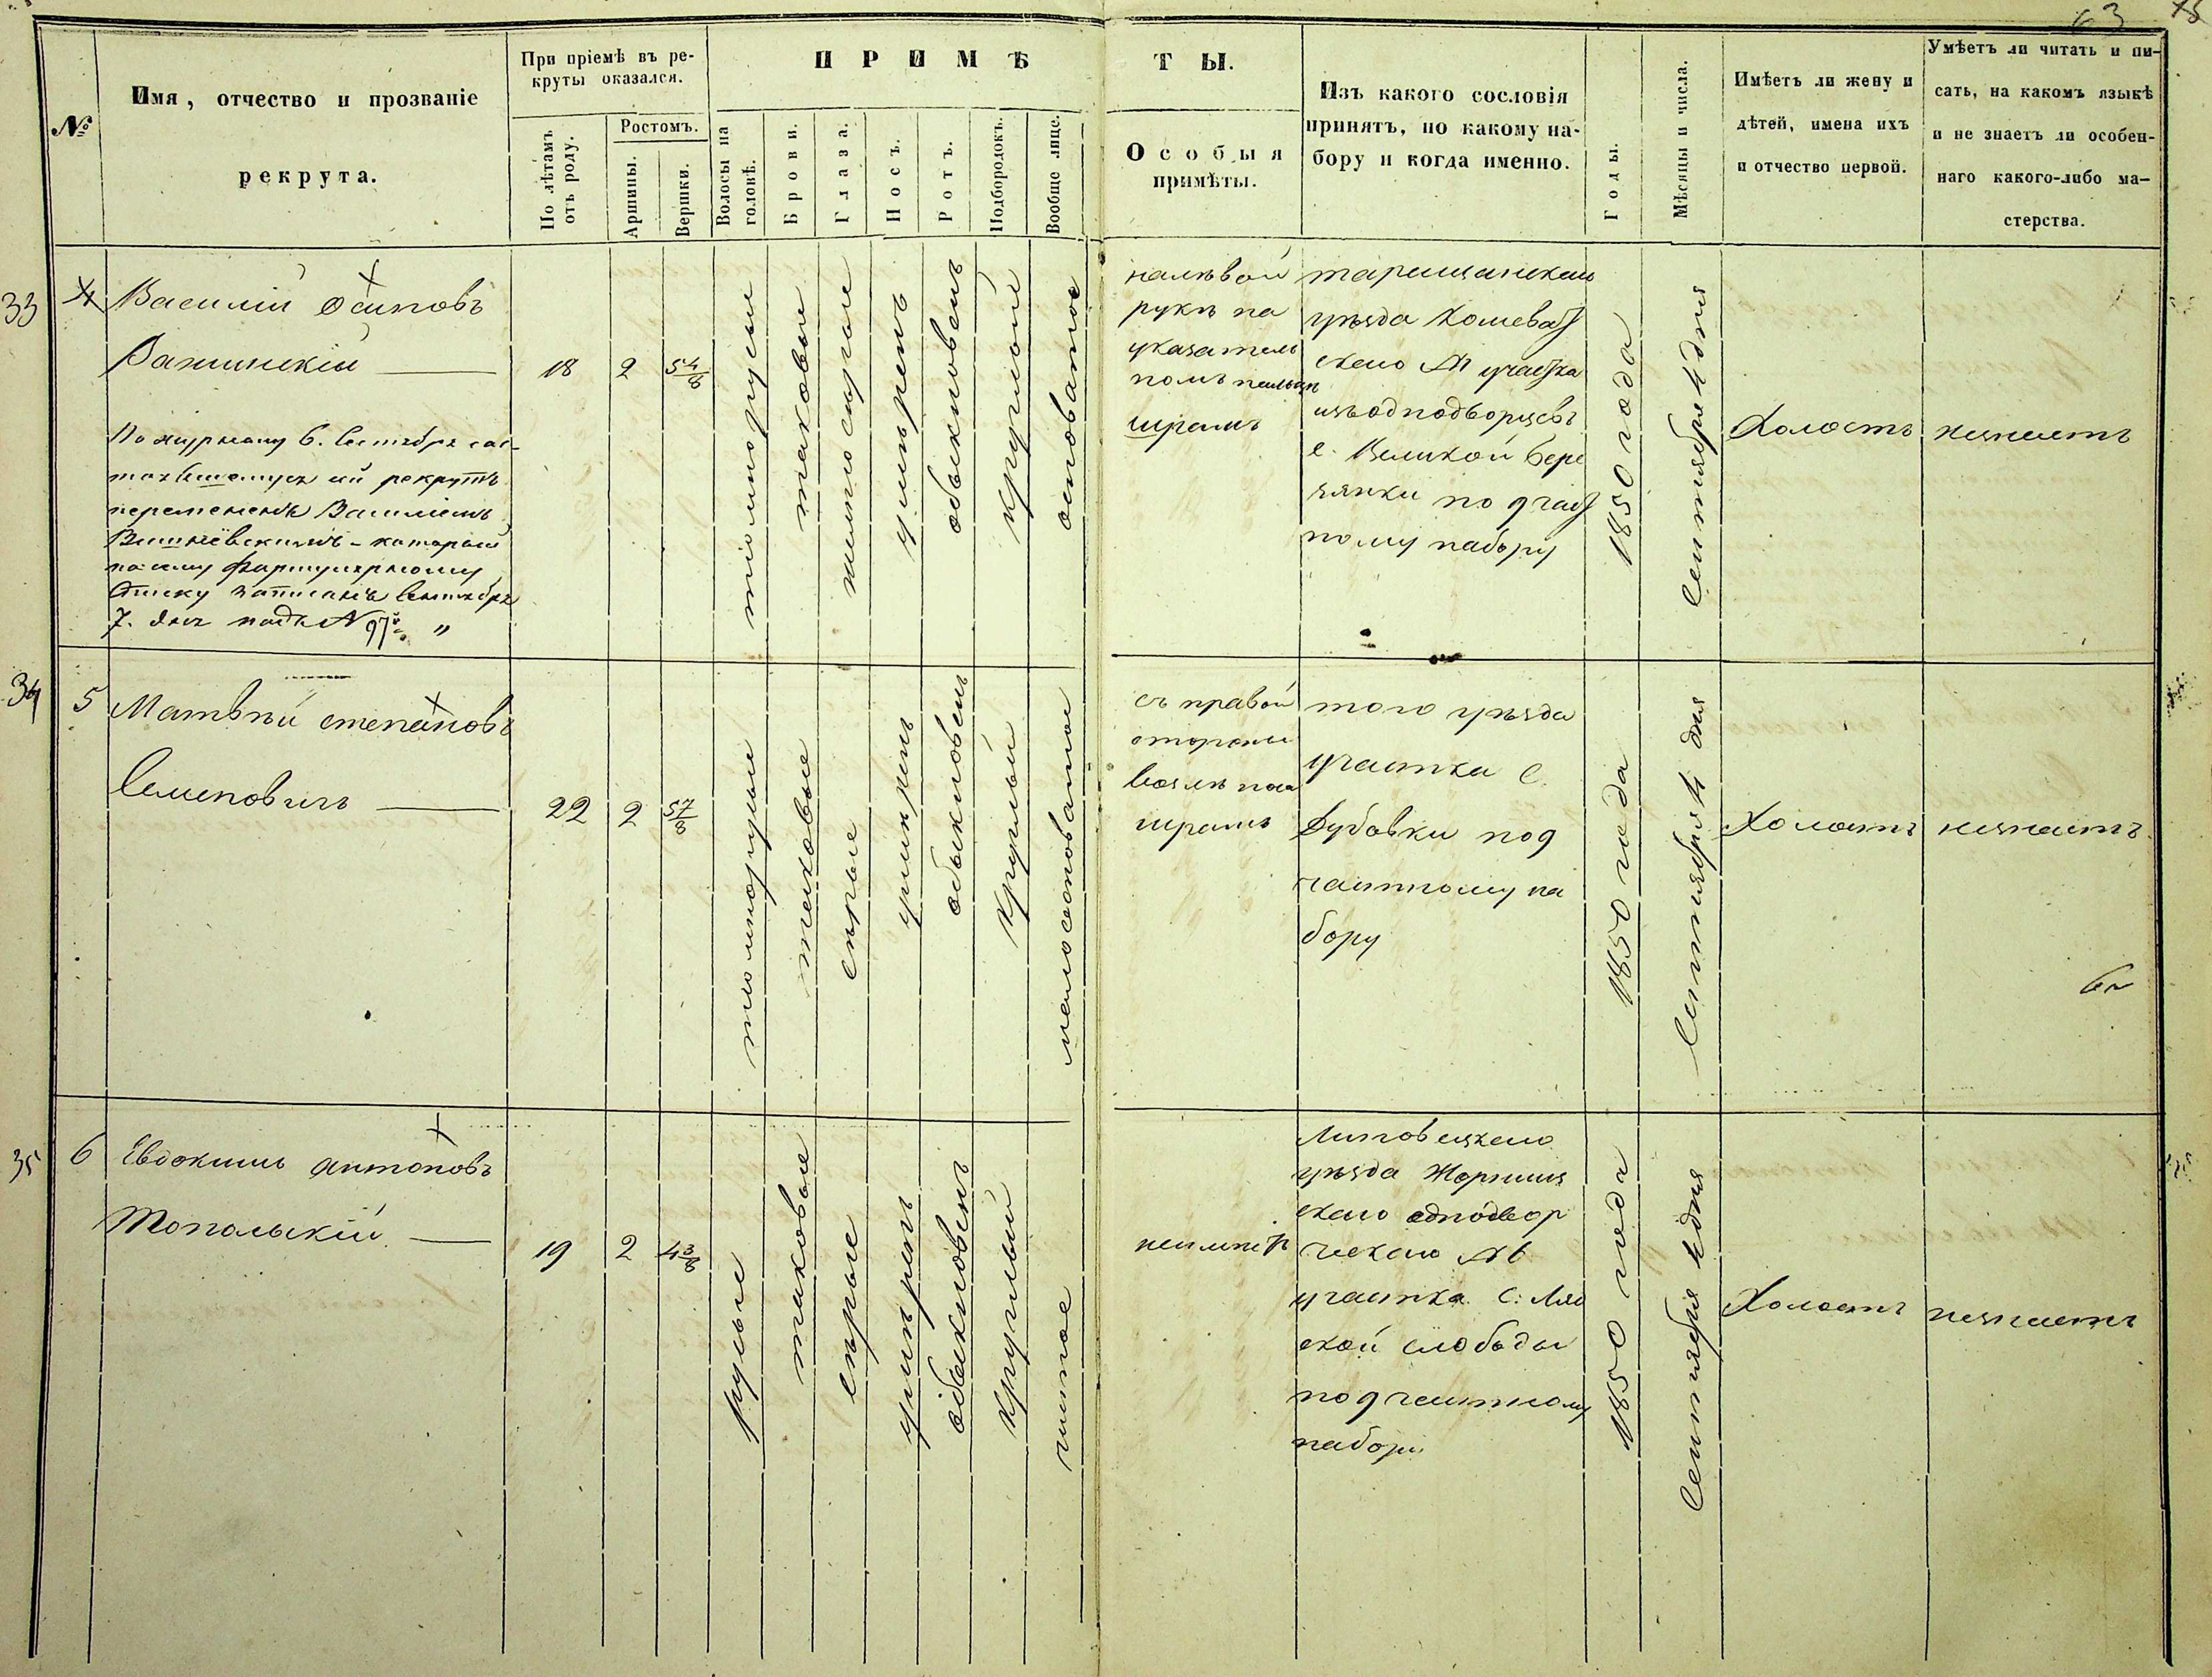 63
№
Имя, отчество и прозваніе
рекрута.
При пріемѣ въ ре-
круты оказался.
По лѣтамъ
отъ роду.
Ростомъ.
Аршины.
Вершки.
ПРИМѢ
ТЫ.
Волосы на
головѣ.
Брови.
Глаза.
Носъ.
Ротъ.
Подбородокъ.
Вообще лице.
Особыя
примѣты.
Изъ какого сословія
принятъ, по какому на-
бору и когда именно.
Годы.
Мѣсяцы и числа.
Имѣетъ ли жену и
дѣтей, имена ихъ
и отчество первой.
Умѣетъ ли читать и пи-
сать, на какомъ языкѣ
и не знаетъ ли особен-
наго какого-либо ма-
стерства.
33
4
Василій Осиповъ
18
2
5 4/8
По журналу 6. Сентября сос-
тоявшемуся сій рекрутъ
перемененъ Василіемъ
Вишнёвскимъ - которой
по сему формулярному
списку записанъ Сентября
7. дня подъ № 97 "
тіомнорусые
таковые
умѣренъ
обыкновенъ
круглой
осповатое
налѣвой
рукѣ на
указатель
номъ пальцѣ
шрамъ
таращанскаго
уѣзда Кошеват
скаго № участка
изъ однодворцевъ
с. Великой Бере
зянки по 9 част
ному набору
1850 года
Сентября 4 дня
Холостъ
незнаетъ
34
5
Матвѣй степановъ
Семеновичъ
22
2
5 7/8
тіомнорусые
таковые
сѣрые
умѣренъ
обыкновенъ
круглый
малоосповатое
съ правой
стороны
возлѣ носа
шрамъ
того уѣзда
участка С.
Дубовки по 9
частному на
бору
1850 года
Сентября 4 дня
Холостъ
незнаетъ
35
6
Евдокимъ антоновъ
Топольскій
19
2
4 3/8
русые
таковые
сѣрые
умѣренъ
обыкновенъ
круглый
чистое
неимѣетъ
Липовецкаго
уѣзда Жорнищ
скаго однодвор
ческаго № 6
участка С: Ляс
ской слободы
по 9 частному
набору
1850 года
Сентября 4 дня
Холостъ
незнаетъ